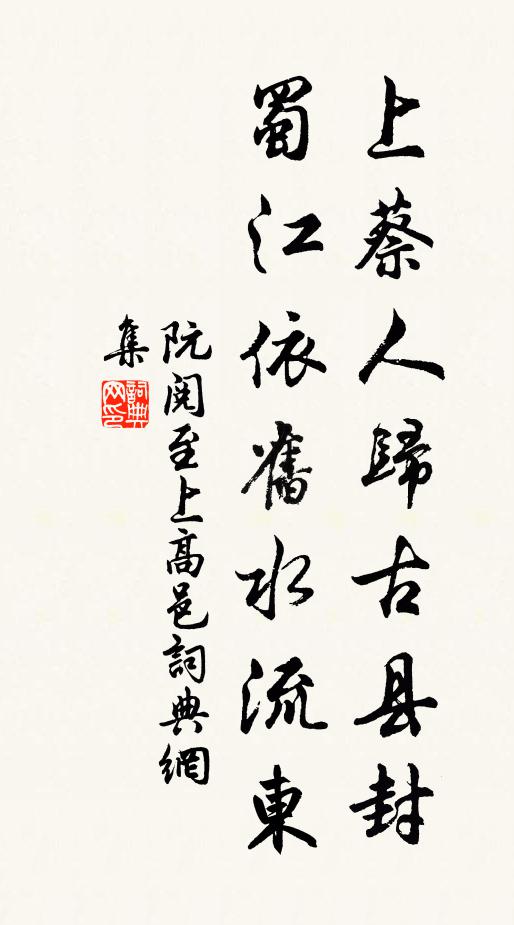 上蔡人歸古县封
蜀江依舊水流東
阮閱至上高邑詞典網
集
詞典网印